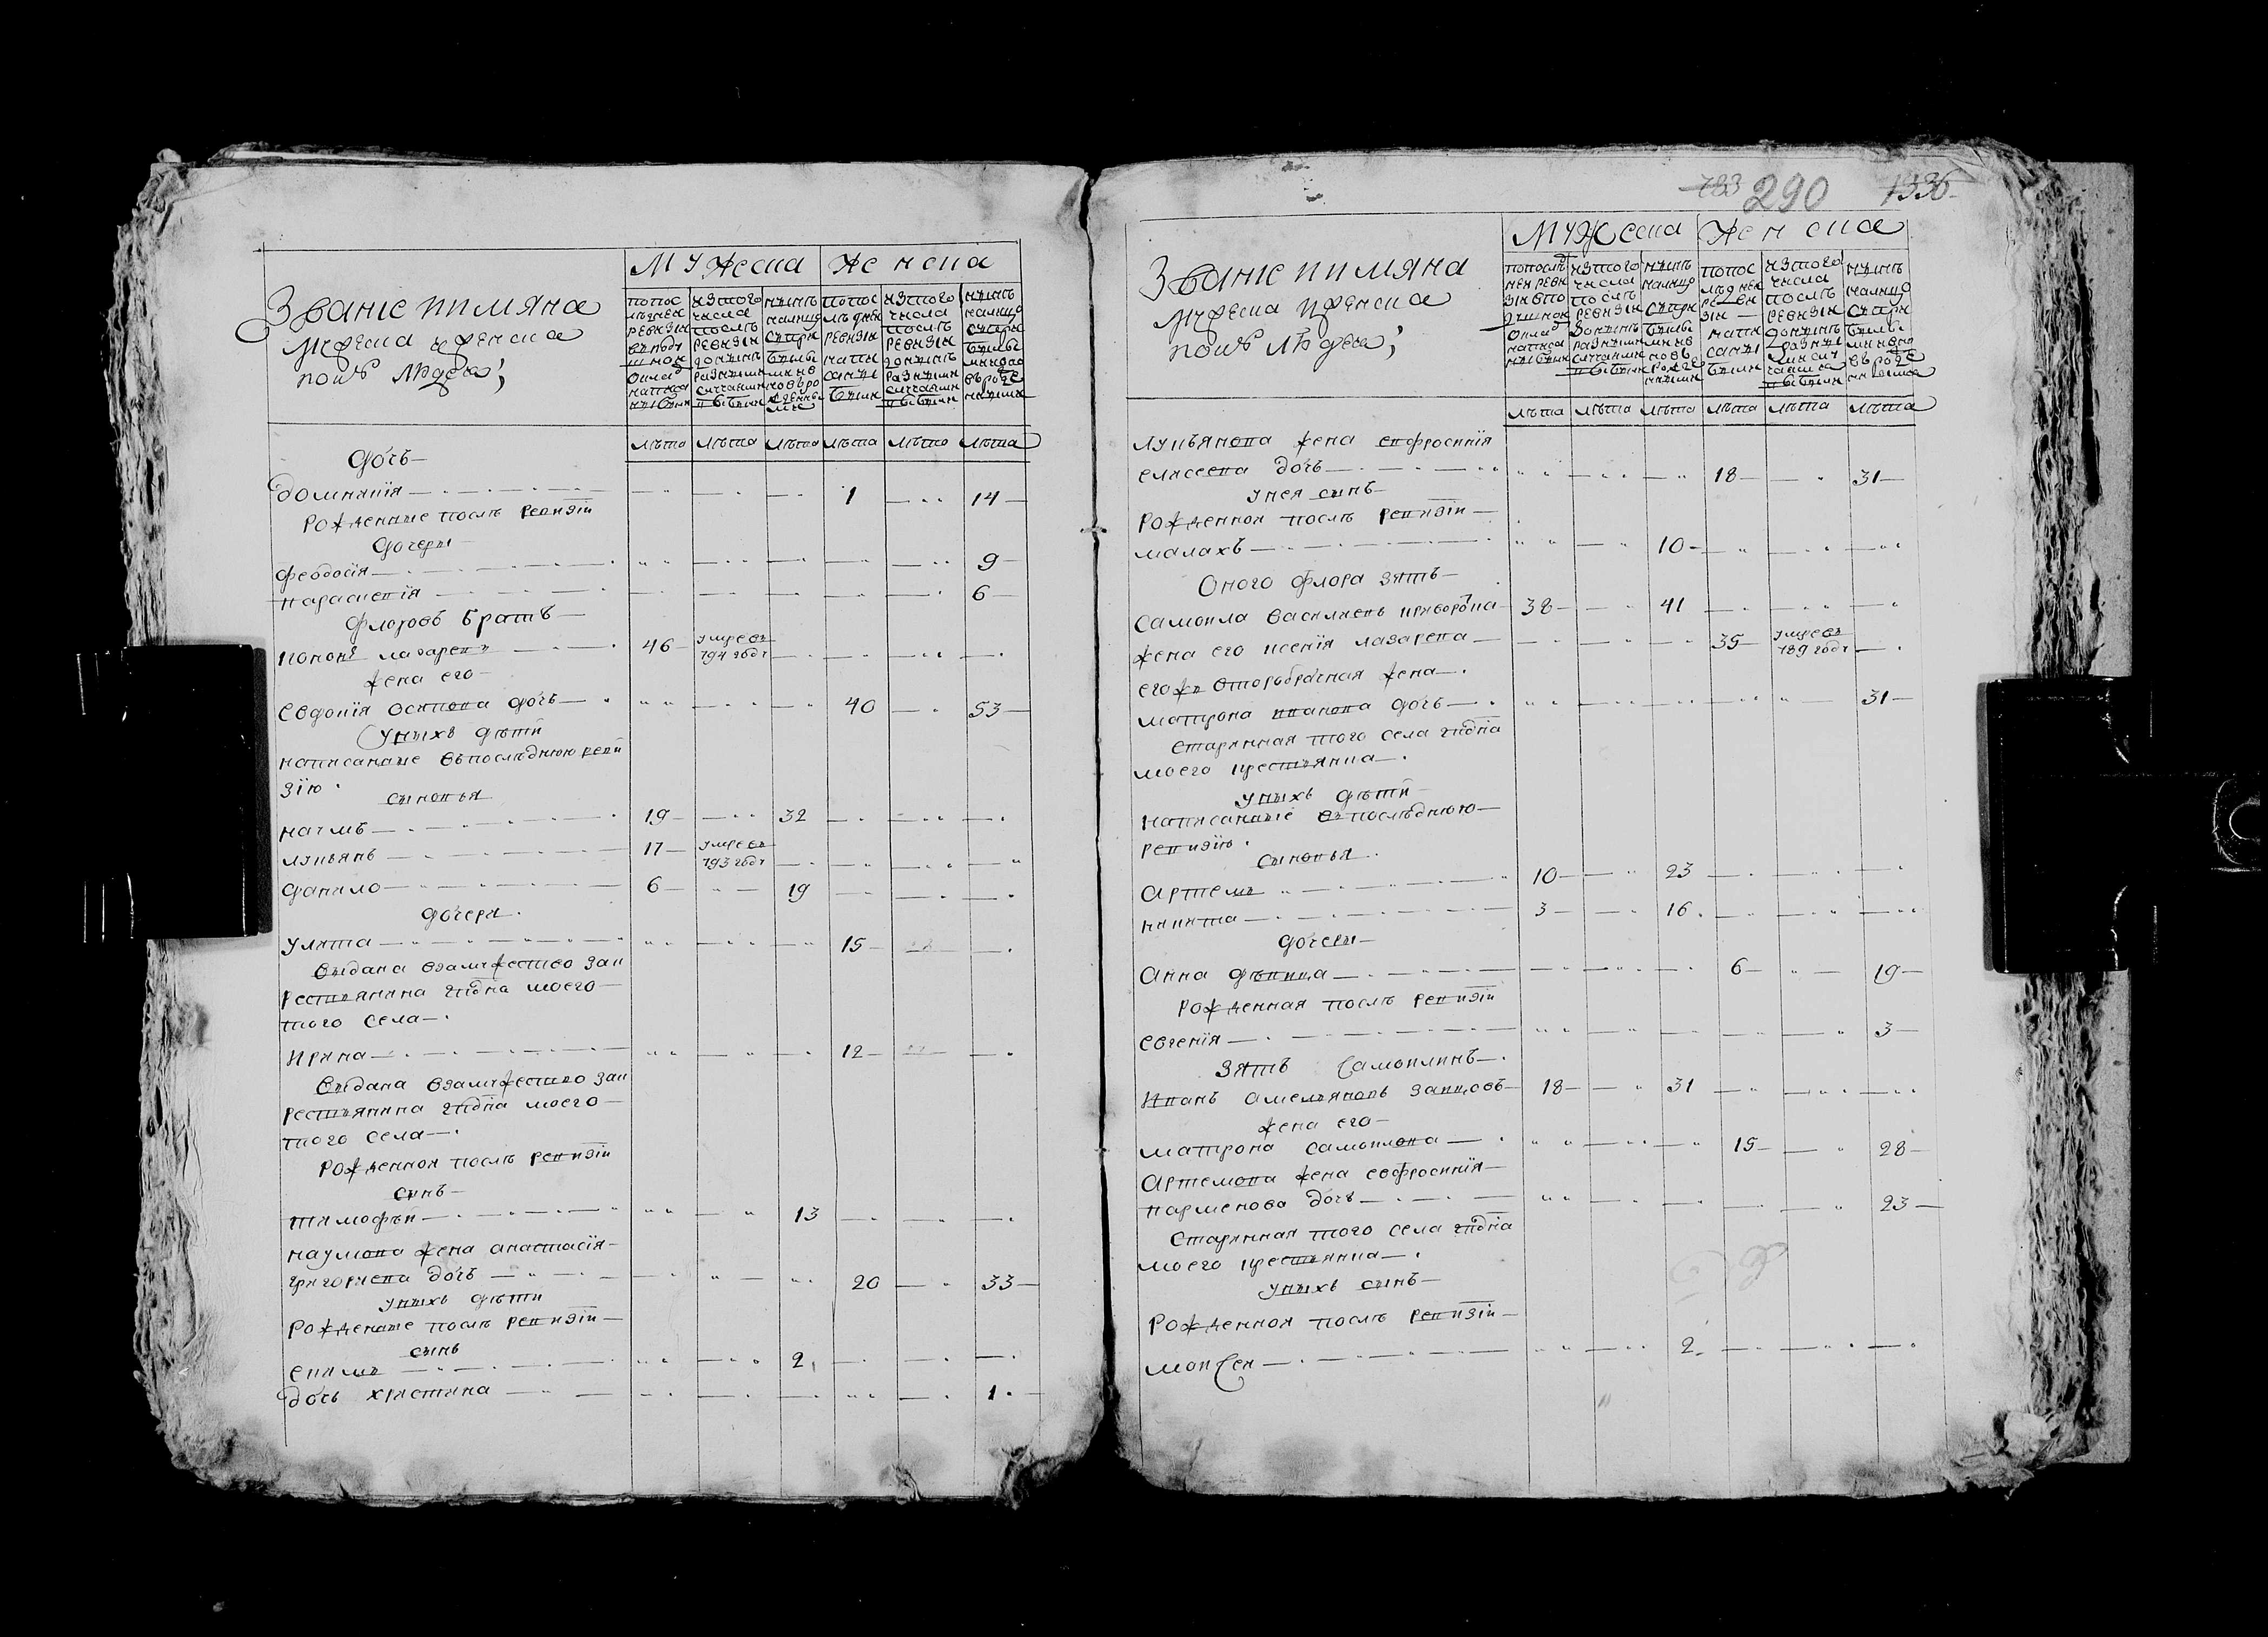 Званіе и имяна
мужеска и женска
полу людей;
Мужеска Женска
попос
лѣдней
ревизіи
въ поду
шной
окла^д
написа
ны были
изтого
числа
послѣ
ревизіи
донынѣ
разными
случаями
выбыли
нынѣ
налицо
съпри
былы
ми и в
новь ро
жденны
ми
попос
лѣдней
ревизіи
напи
саны
были
изтого
числа
послѣ
ревизіи
донынѣ
разными
случаями
выбыли
нынѣ
налицо
съпри
былы
ми
лѣта лѣта лѣта лѣта лѣта лѣта
дочь
домникія 1 14
рожденные послѣ ревизіи
дочери
феодосія 9
параскевія 6
флоровъ братъ
кононъ лазаревъ 46 умре въ 794 году
жена его
евдокія осипова дочь 40 53
уныхъ дѣти
написаные въ последнюю реви
зію
сыновья
наумъ 19 32
лукьянъ 17 умре въ 793 году
данило 6 19
дочери
улита 15
выдана взамужество зак
рестьянина гпдна моего
того села
ирина 12
выдана взамужество зак
рестьянина гпдна моего
того села
рожденной послѣ ревизіи
сынъ
тимофѣй 13
наумова жена анастасія
григориева дочь 20 33
уныхъ дѣти
рожденые послѣ ревизіи
сынъ
екимъ 2
дочь христина 1
783 290 1336
Званіе и имяна
мужеска и женска
полу людей;
Мужеска Женска
попослѣ^д
ней реви
зіи в по
душной
окла^д
написа
ны были
изтого
числа
послѣ
ревизіи
донынѣ
разными
случаями
выбыли
нынѣ
налицо
съпри
былы
ми и в
новь
рожде
нными
попос
лѣдней
реви
зіи
напи
саны
были
изтого
числа
послѣ
ревизіи
донынѣ
разны
ми слу
чаями
выбыли
нынѣ
налицо
съпри
былы
лѣта лѣта лѣта лѣта лѣта лѣта
лукьянова жена евфросинія
елисеева дочь 18 31
унея сынъ
рожденной послѣ ревизіи
малахъ 10
оного флора зять
самоила василиевъ 38 41
жена его ксенія лазарева 35 умре въ 789 году
егожъ второбрачная жена
матрона иванова дочь 31
старинная того села гпдна
моего крестьянка
уныхъ дѣти
написаные въ последнюю
ревизію
сыновья
артемъ 10 23
никита 3 16
дочери
анна дѣвица 6 19
рожденная послѣ ревизіи
евгенія 3
зять самоилинъ
иванъ омельяновъ зайцовъ 18 31
жена его
матрона самоилова 15 28
артемова жена евфросинія
парменова дочь 23
старинная того села гпдна
моего крестьянка
уныхъ сынъ
рожденной послѣ ревизіи
моисей 2